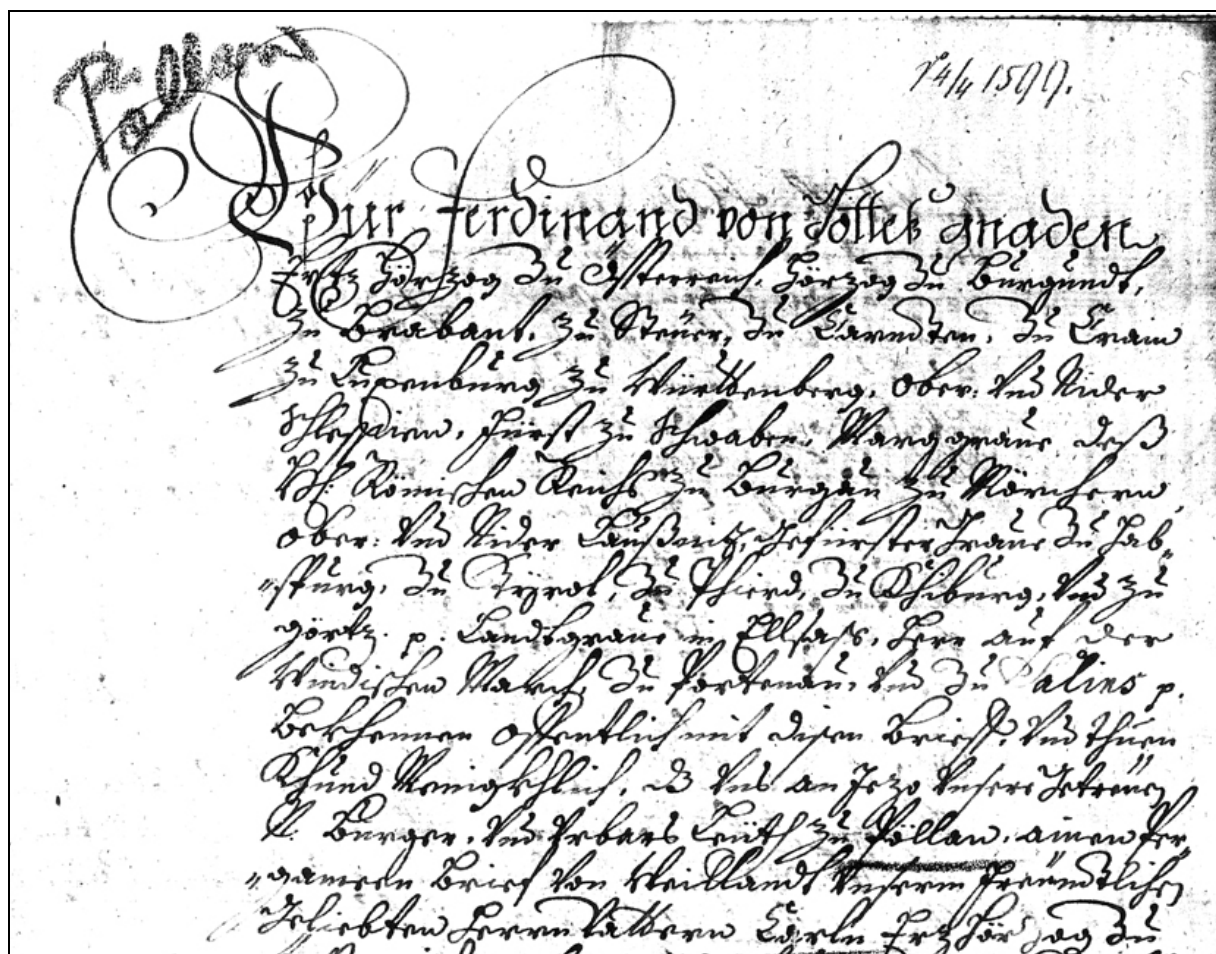 Pöllau
14/4 1599.
Wür Ferdinand von Gottes gnaden
Ertz Hörzog zu Össterreich, Hörzog zu Burgundt,
zu Brabant, zu Steüer, zu Carndten, zu Crain
zu Luzenburg zu Württenberg, Ober: Vnd Nider
Schlessien, Fürst zu Schwaben, Marggraue deß
Hh: Römischen Reichs zu Burgau zu Mörchern
Ober: Vnd Nider Laußnitz, Gefürster Graue zu Hab„
„spurg, zu Tyrol, zu Phierd, zu Khiburg, Vnd zu
görtz. p. Landtgraue in Ellsass, Herr auf der
Windischen March, zu Portenau, Vnd zu Salins p.
Bekhennen offentlich mit disen Brieff, Vnd thuen
Khund Menigkhlich, dz Vns an Jezo Vnsere Getreüe
N. Burger, Vnd Erbare Leüth zu Pöllau, ainen Per„
„gameen Brief von Weillandt Vnserm Freündtlichen
Geliebten Herrn Vattern Carln Ertz Hörzog zu